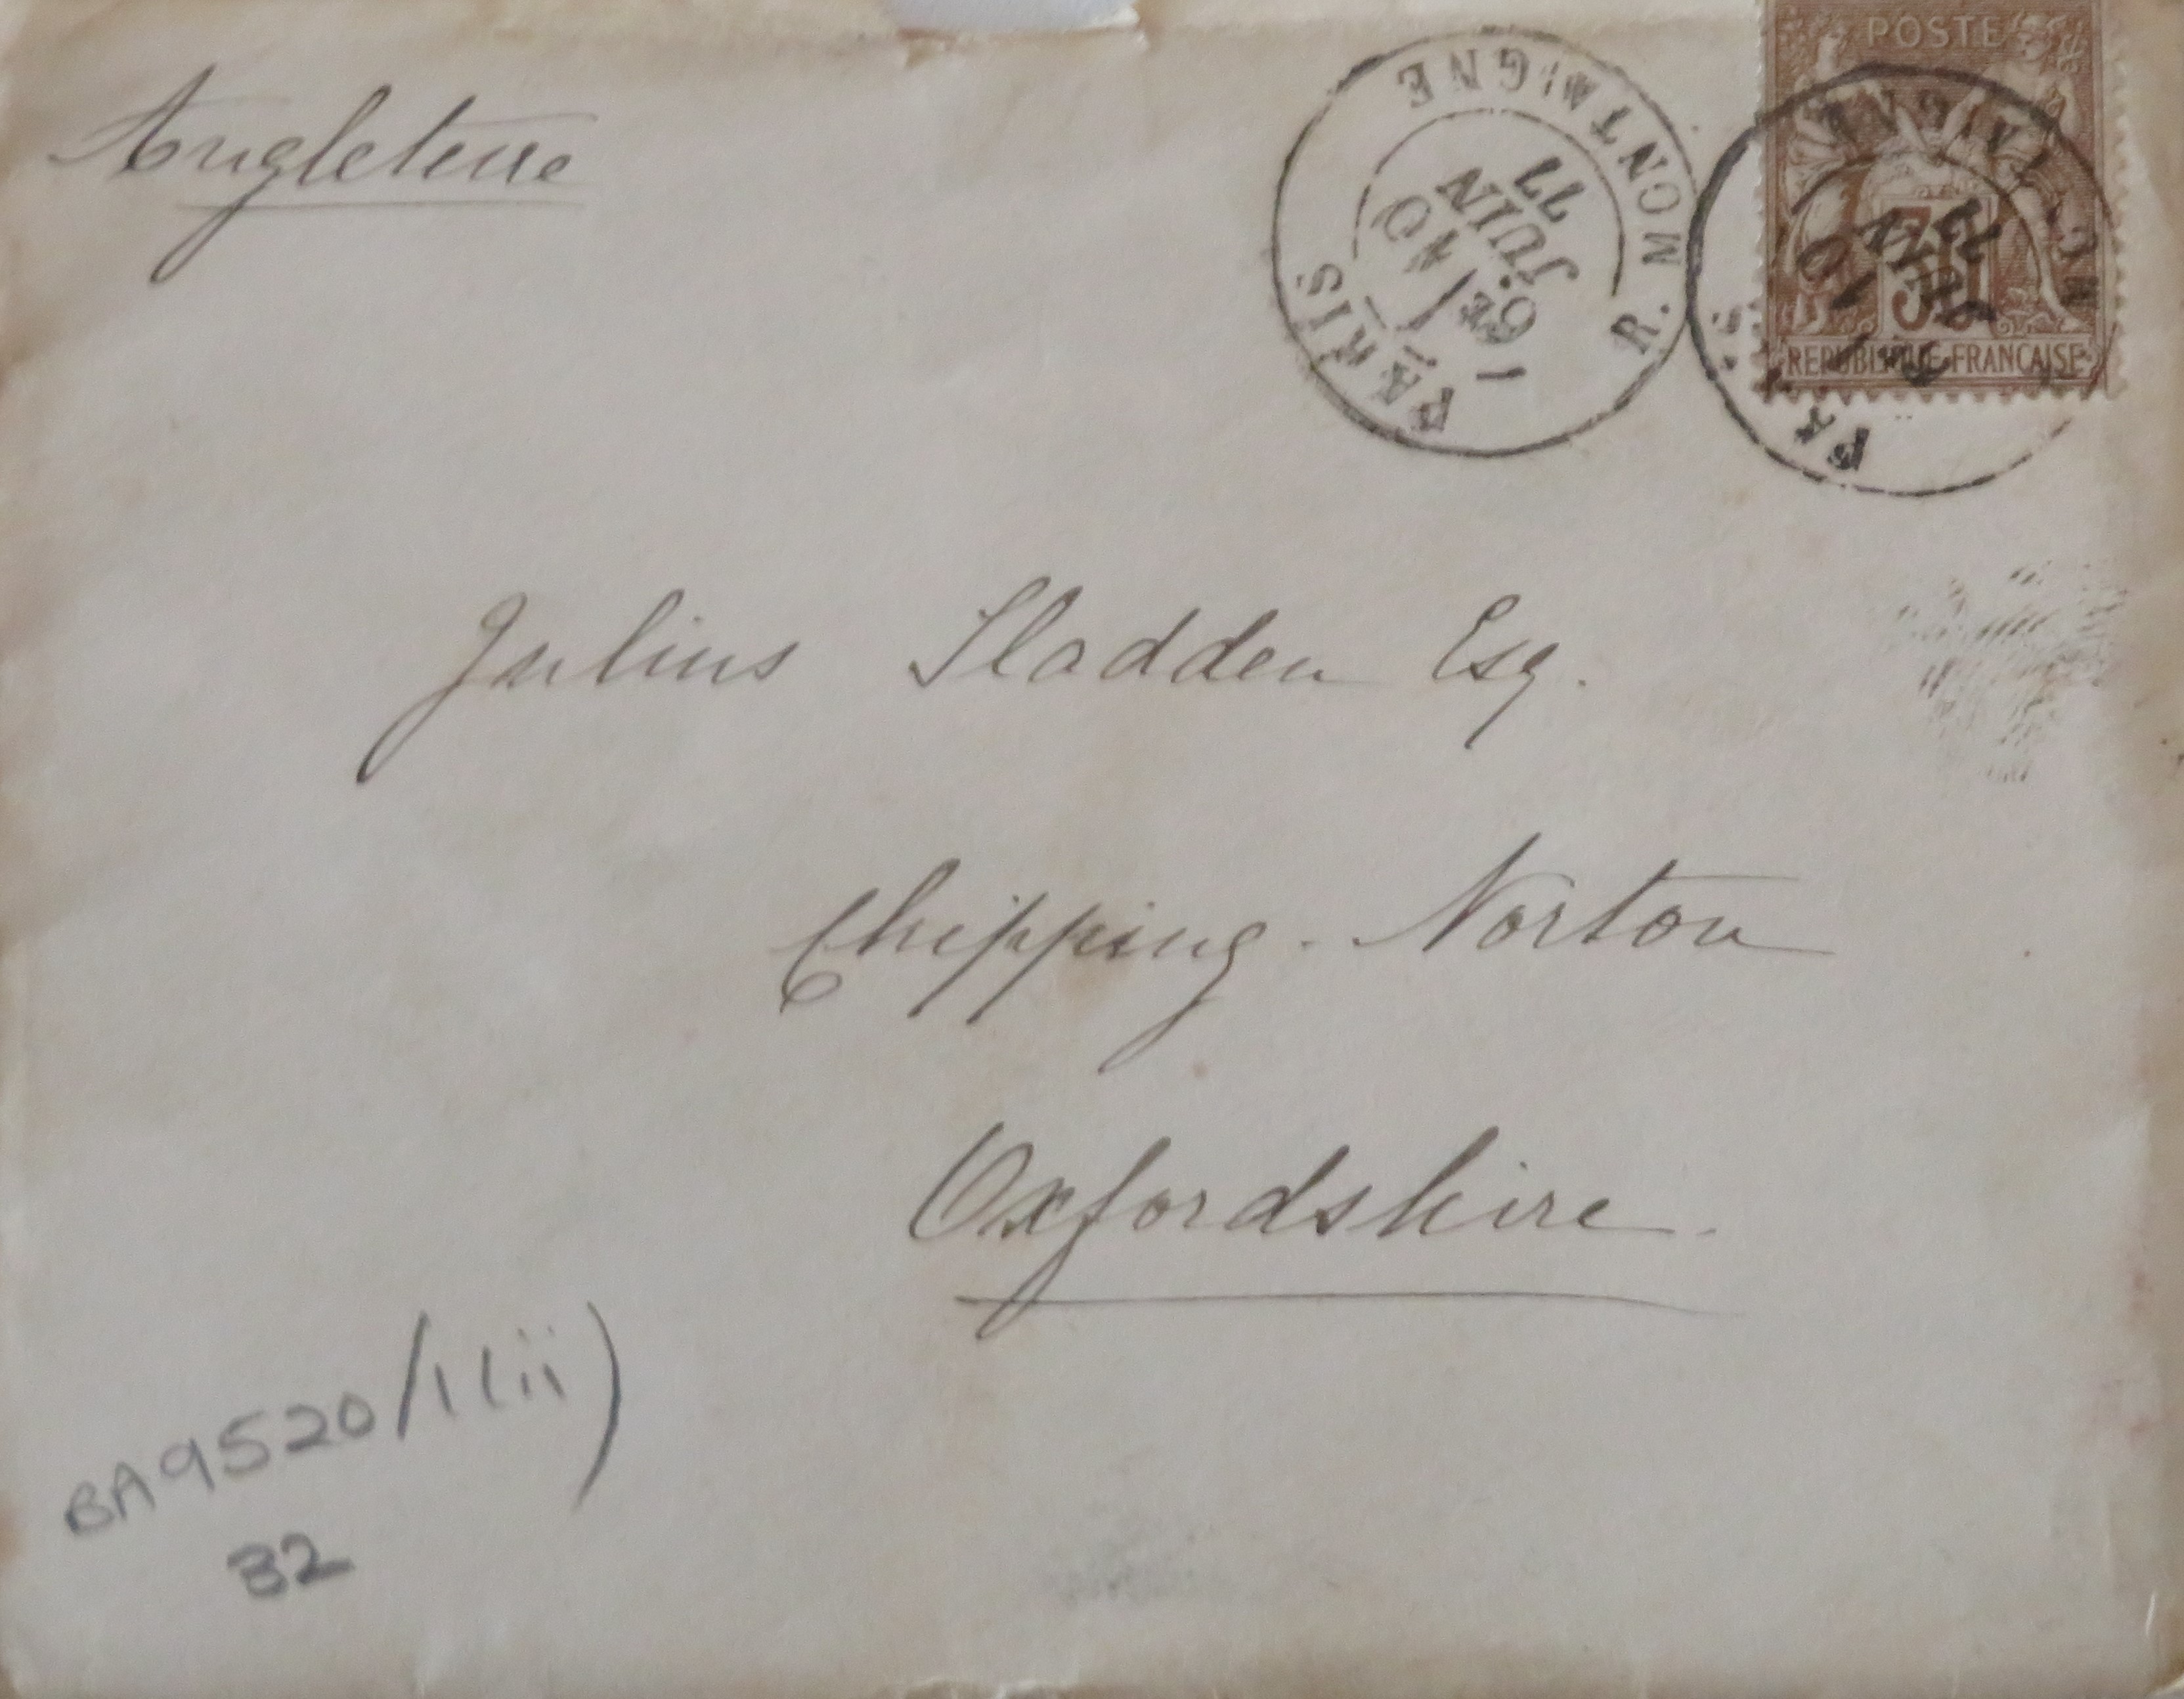 Angleterre
POSTE
30
REPUBLIQUE FRANCAISE
PARIS
R. MONTAIGNE
6E
10
JUIN
77
PARIS
Julius Sladden Esq.
Chipping. Norton
Oxfordshire.
BA9520/1(ii)
32